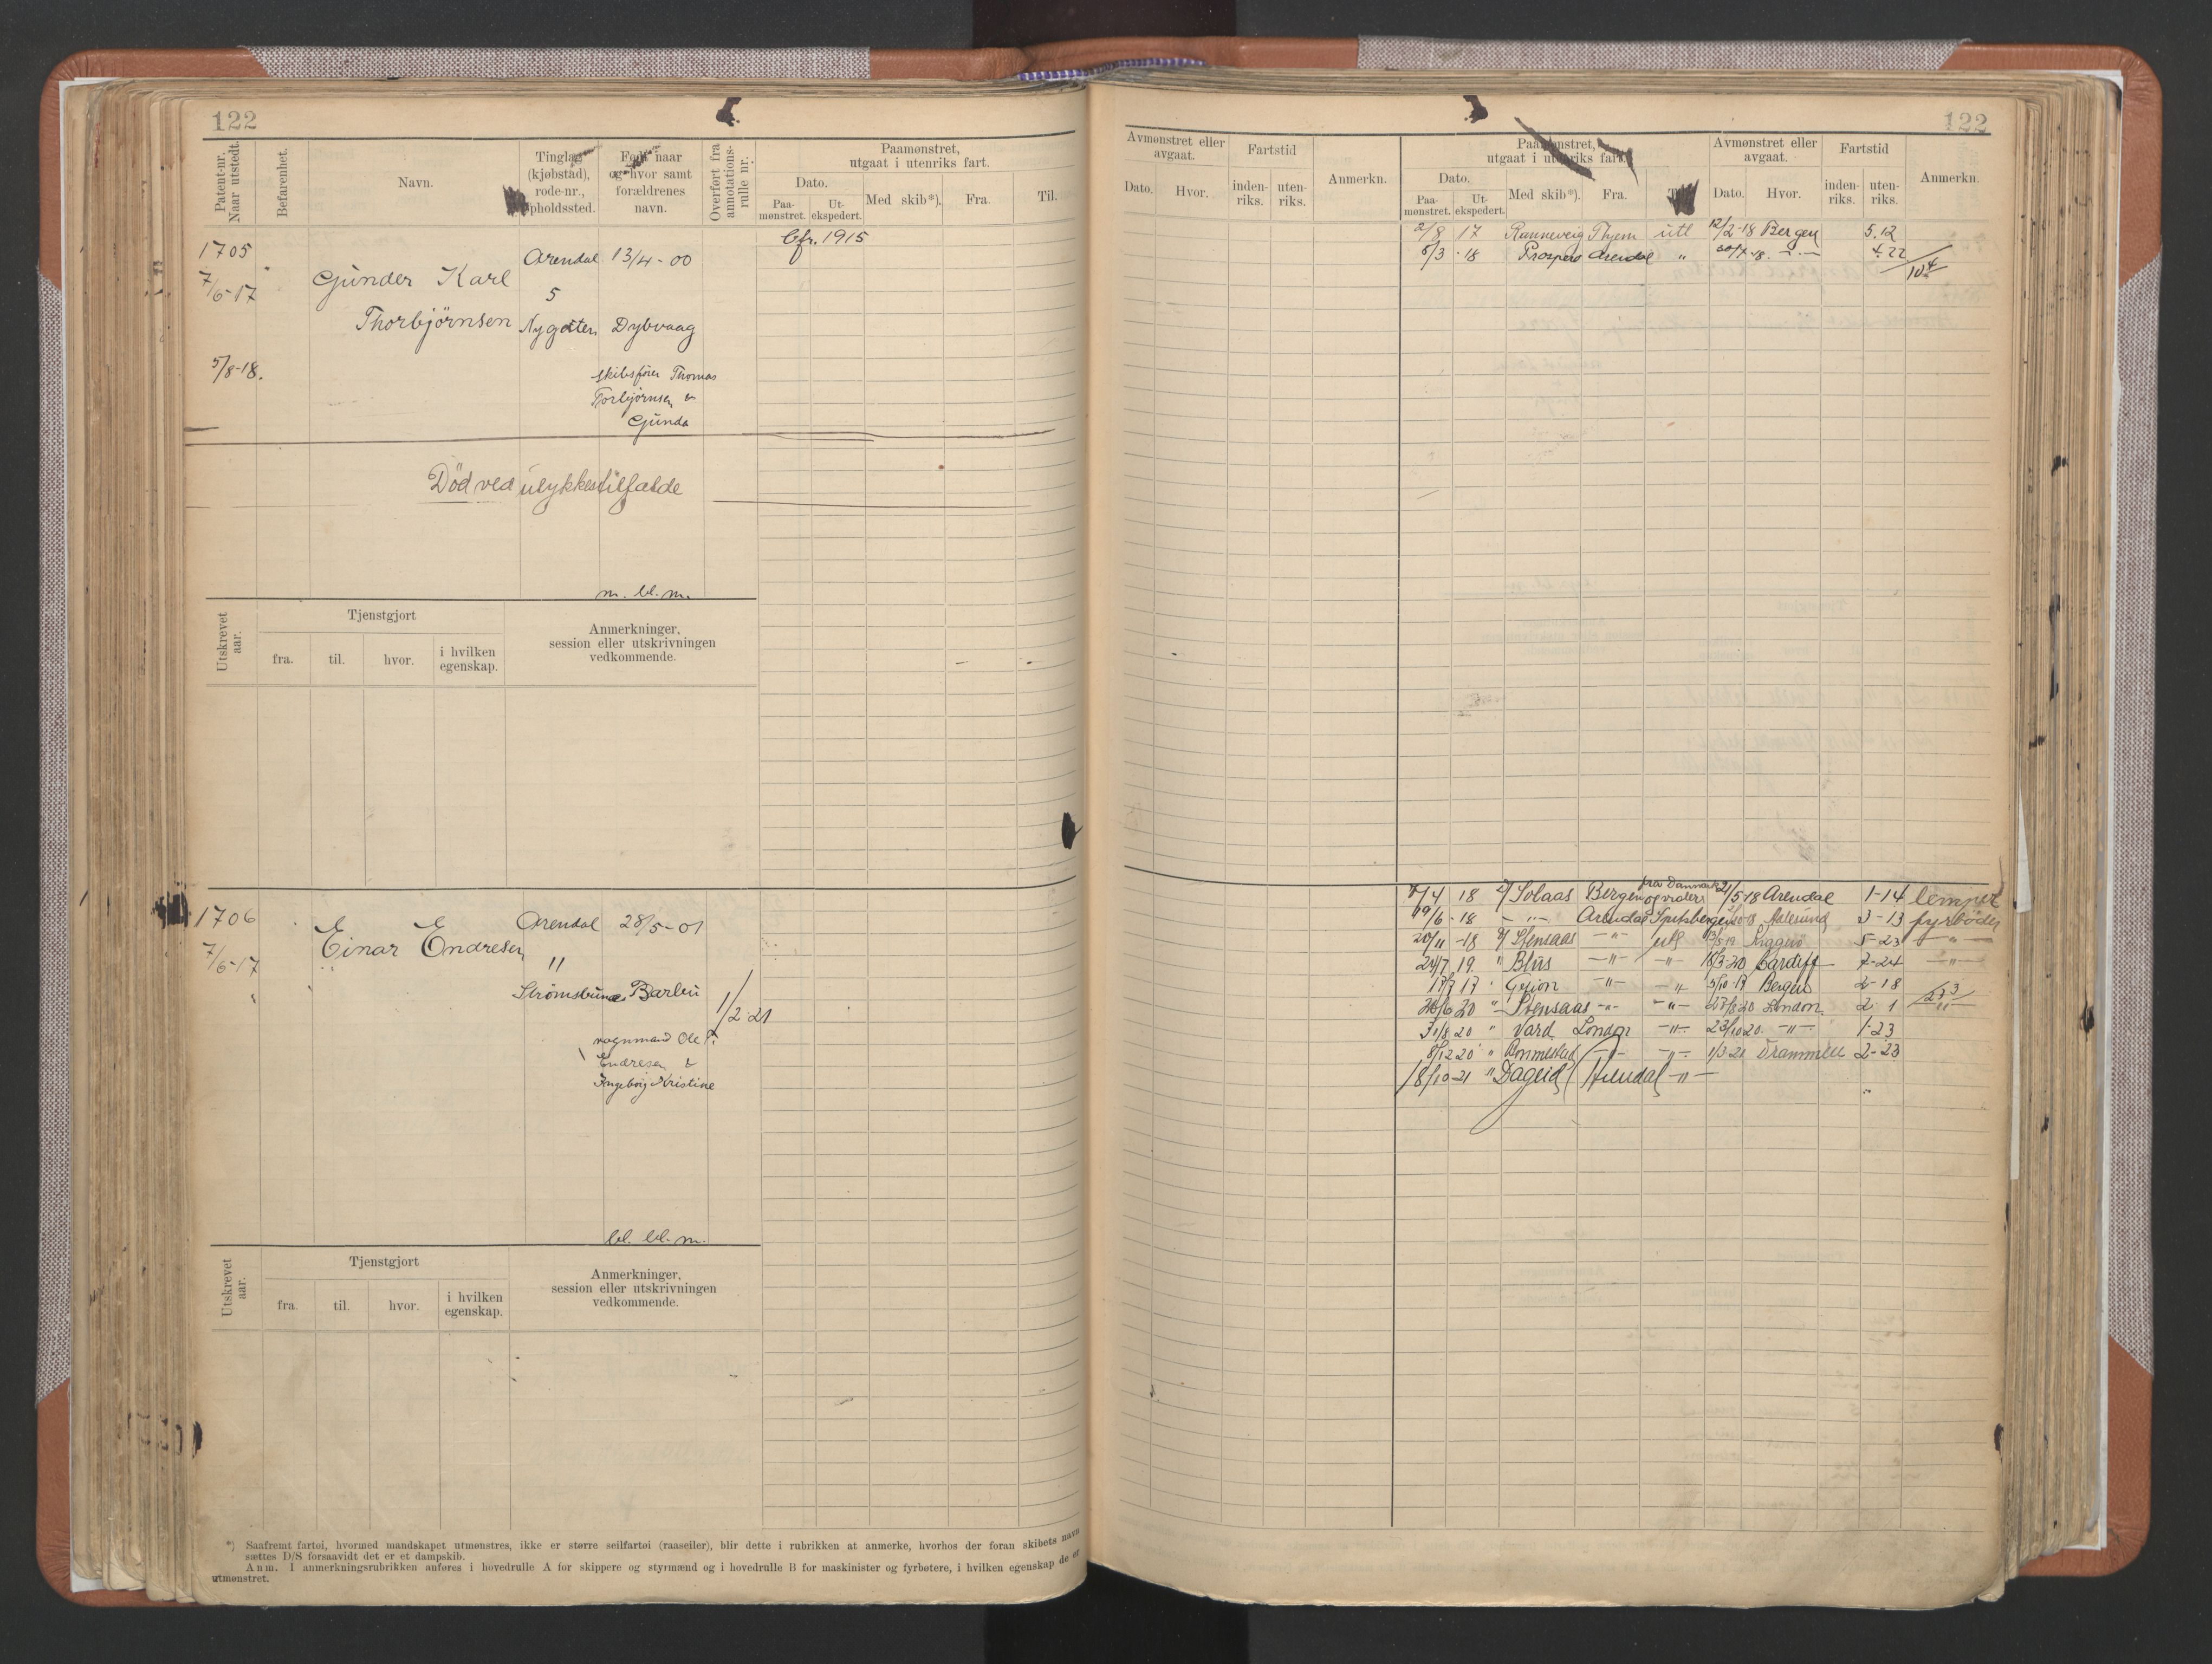 122
Patent-nr. Naar utstedt.
Befarenhet.
Navn.
Tinglag (kjøbstad), rode-nr., opholdssted.
Født naar og hvor samt forældrenes navn.
Overført fra annotations-rulle nr.
Paamønstret, utgaat i utenriks fart.
Dato.
Paa-mønstret.
Ut-ekspedert.
Med skib*).
Fra.
Til.
Cfr. 1915
1705
Arendal 13/4-00
7/6-17
Gunder Karl
5
Thorbjørnsen Nygaten Dybvaag
5/8-18.
skibsfører Thomas
Torbjørnsen &
Gunda
Død ved ulykkestilfælde
m. bl. m.
Utskrevet aar.
Tjenstgjort
fra. til. hvor. i hvilken egenskap.
Anmerkninger, session eller utskrivningen vedkommende.
1706
Arendal 28/5-01
7/6-17
Einar Endresen
"
Strømsbunes Barbu
1/2 21
vognmand Ole
Endresen &
Ingeborg Kristine
bl. bl. m.
Utskrevet aar.
Tjenstgjort
fra. til. hvor. i hvilken egenskap.
Anmerkninger, session eller utskrivningen vedkommende.
*) Saafremt fartøi, hvormed mandskapet utmønstres, ikke er større seilfartøi (raaseiler), blir dette i rubrikken at anmerke, hvorhos der foran skibets navn
sættes D/S forsaavidt det er et dampskib.
Anm. I anmerkningsrubrikken anføres i hovedrulle A for skippere og styrmænd og i hovedrulle B for maskinister og fyrbøtere, i hvilken egenskap de er
utmønstret.
122
Avmønstret eller avgaat.
Dato. Hvor.
Fartstid
inden-riks. uten-riks.
Anmerkn.
Paamønstret, utgaat i utenriks fart.
Dato.
Paa-mønstret. Ut-ekspedert.
Med skib*). Fra.
Avmønstret eller avgaat.
Dato. Hvor.
Fartstid
inden-riks. uten-riks.
Anmerkn.
2/8 17 Ranneveig utl 12/2-18 Bergen 5.12
8/3-18 Prospero Arendal " 30/7-18. -"- 4.22
10 4
4 18 Solaas Bergen fra Danmark 21/5-18 Arendal 1-14 lemper
19/6-18 -"- Arendal Spitsbergen Aalesund 3-13 fyrbøder
20/11-18 Stensaas -"- utl Kragerø 5-23 -"-
24/7 19. " Blus -"- -"- 18/3-20 Cardiff 7-24 -"-
17/7 17 " Gefion -"- -"- 5/10-17 Bergen 2-18
26/6 20 " Stensaas -"- -"- 27/8-20 London. 2 1
27 3
31/8 20 " Vard London -"- 23/10 20. -"- 1-23
8/12 20 " -"- -"- 1/3-21 Drammen 2-23
18/10-21 " Dageid Arendal -"-